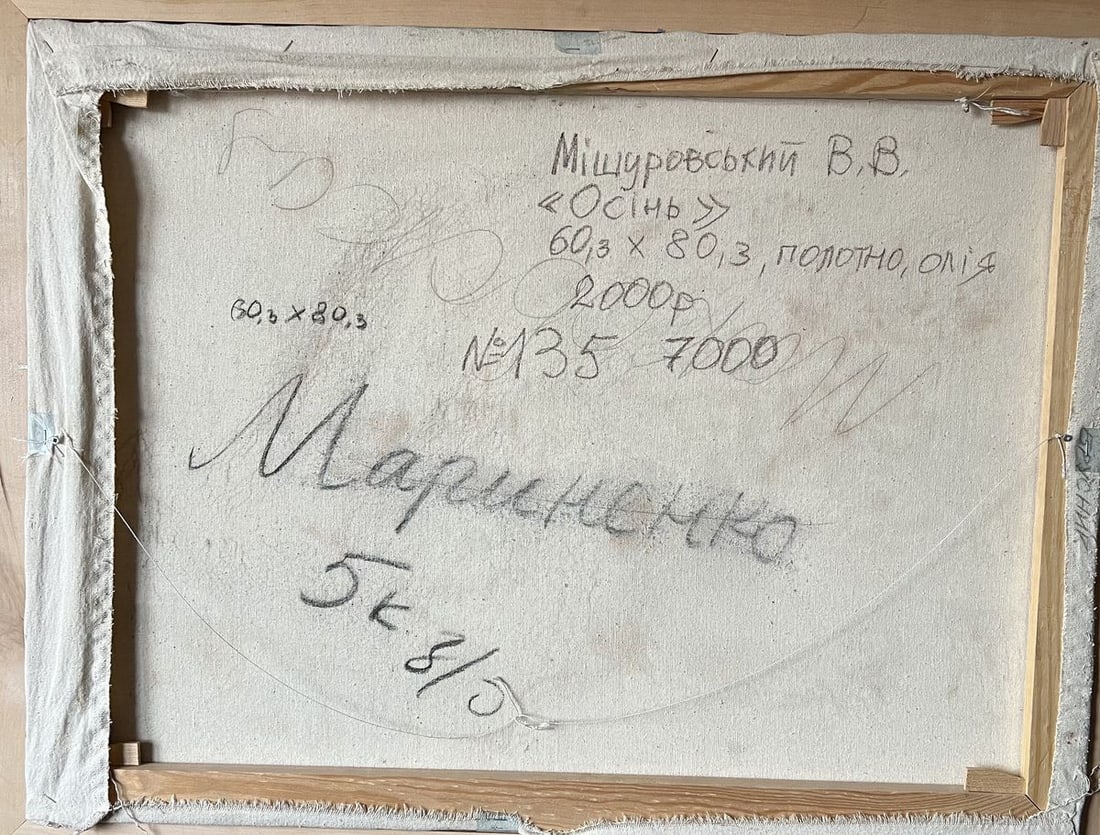 Мішуровський В.В.
«Осінь»
60,3 х 80,3, полотно, олія
2000р
60,3 х 80,3
№135 7000
Мариненко
5к